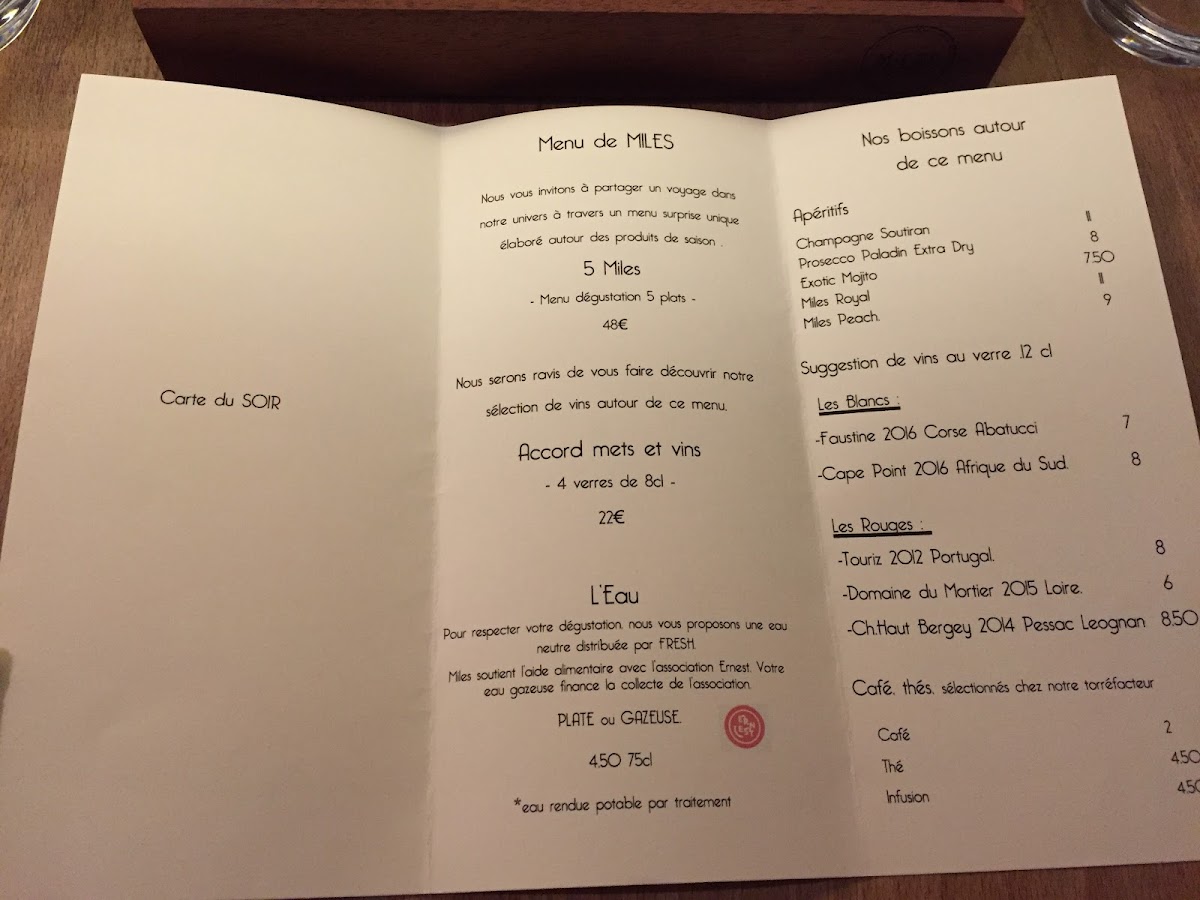 Carte du SOIR
Menu de MILES
Nous vous invitons à partager un voyage dans
notre univers à travers un menu surprise unique
élaboré autour des produits de saison .
5 Miles
- Menu dégustation 5 plats -
48€
Nous serons ravis de vous faire découvrir notre
sélection de vins autour de ce menu.
Accord mets et vins
- 4 verres de 8cl -
22€
L'Eau
Pour respecter votre dégustation, nous vous proposons une eau
neutre distribuée par FRESH.
Miles soutient l'aide alimentaire avec l'association Ernest. Votre
eau gazeuse finance la collecte de l'association.
PLATE ou GAZEUSE.
ERN
EST
4.50 75cl
*eau rendue potable par traitement
Nos boissons autour
de ce menu
Apéritifs
Champagne Soutiran 11
Prosecco Paladin Extra Dry 8
Exotic Mojito 7.50
Miles Royal 11
Miles Peach. 9
Suggestion de vins au verre .12 cl
Les Blancs :
-Faustine 2016 Corse Abatucci 7
-Cape Point 2016 Afrique du Sud. 8
Les Rouges :
-Touriz 2012 Portugal. 8
-Domaine du Mortier 2015 Loire. 6
-Ch.Haut Bergey 2014 Pessac Leognan 8.50
Café, thés, sélectionnés chez notre torréfacteur
Café 2
Thé 4.50
Infusion 4.50